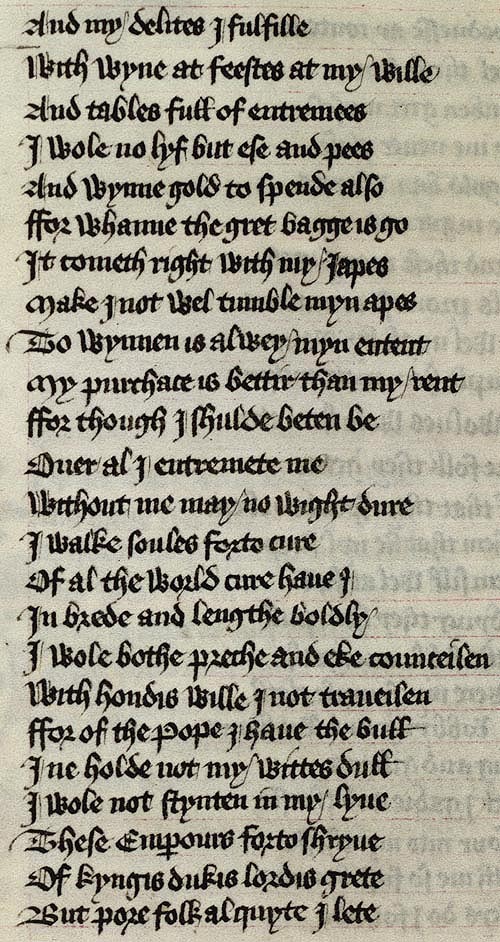 And my delites I fulfille
With wyne at feestes at my wille
And tables full of entremees
I wole no lyf but ese and pees
And wynne gold to spende also
ffor whanne the gret bagge is go
It cometh right with my Japes
Make I not wel tumble myn apes
To wynnen is alwey myn entent
My purchace is bettir than my rent
ffor though I shulde beten be
Ouer al I entremete me
Without me may no wight dure
I walke soules forto cure
Of al the world cure haue I
In brede and lengthe boldly
I wole bothe preche and eke counceilen
With hondis wille I not traueilen
ffor of the Pope I haue the bull
I ne holde not my wittes dull
I wole not stynten in my lyue
These Empours forto shryue
Of kyngis dukis lordis grete
But pore folk al quyte I lete